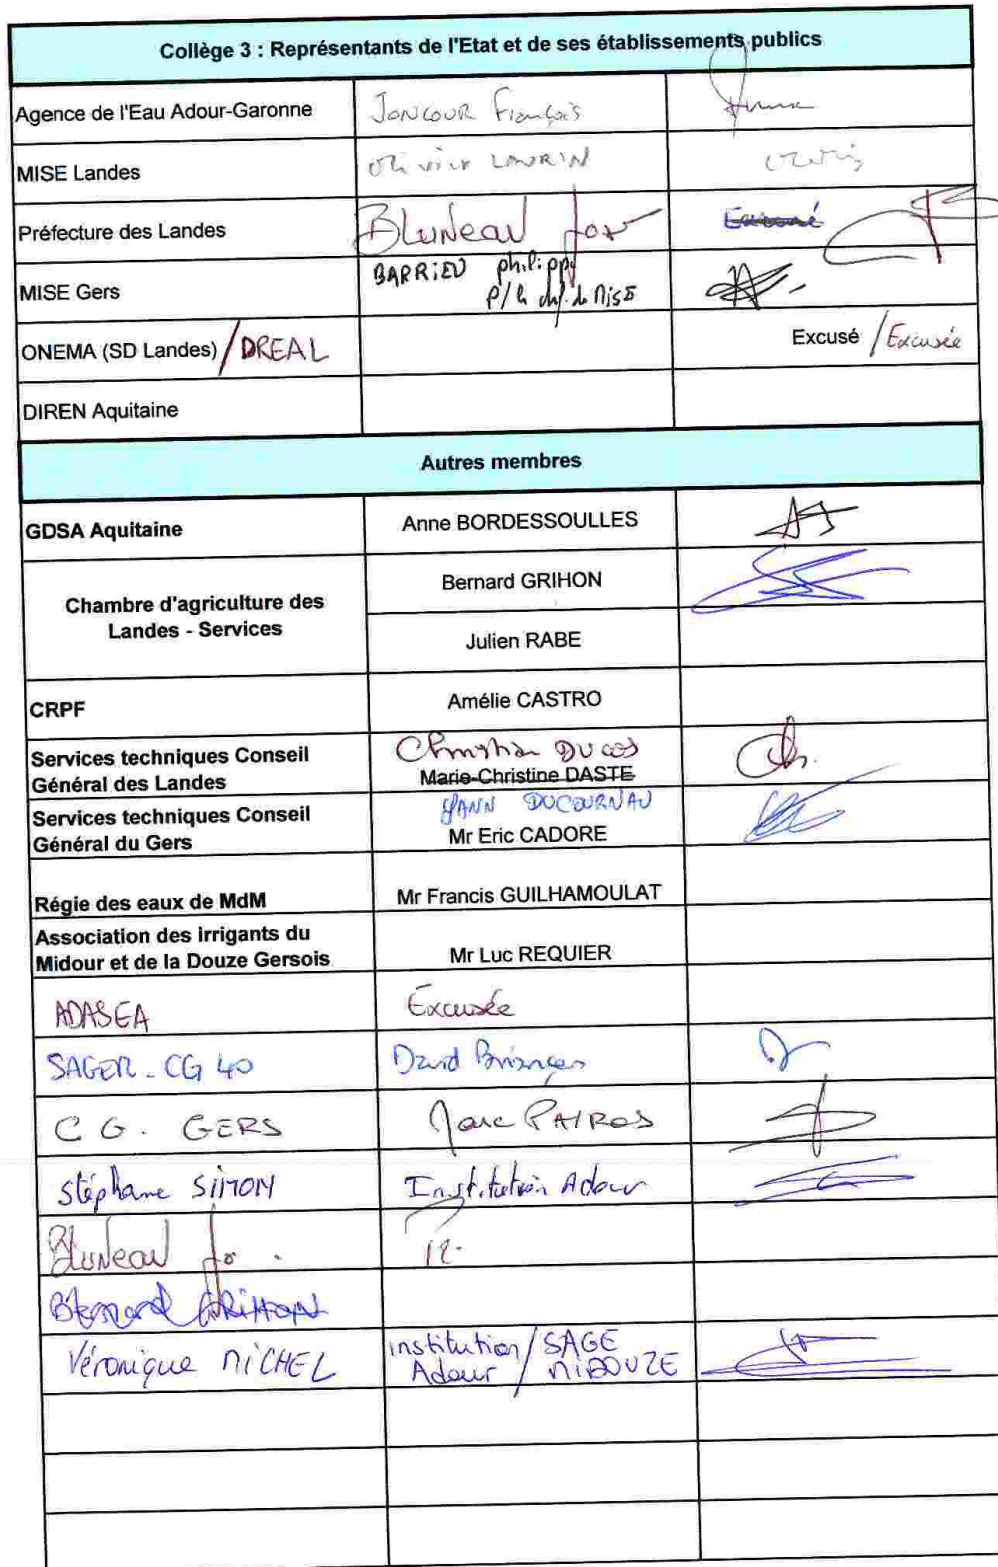 Collège 3 : Représentants de l'Etat et de ses établissements publics
Agence de l'Eau Adour-Garonne JONCOUR François
MISE Landes Olivier LAURIN
Préfecture des Landes BLUNeau Jo Excusé
MISE Gers BARRIEU philippe
P/le chf. de MISE
ONEMA (SD Landes) / DREAL Excusé / Excusée
DIREN Aquitaine
Autres membres
GDSA Aquitaine Anne BORDESSOULLES
Chambre d'agriculture des
Landes - Services
Bernard GRIHON
Julien RABE
CRPF Amélie CASTRO
Services techniques Conseil
Général des Landes
Christian DUCOS
Marie-Christine DASTE
Services techniques Conseil
Général du Gers
YANN DUCOURNAU
Mr Eric CADORE
Régie des eaux de MdM Mr Francis GUILHAMOULAT
Association des irrigants du
Midour et de la Douze Gersois
Mr Luc REQUIER
ADASEA Excusée
SAGER - CG 40 David
C G. GERS Marc PAIROS
Stéphane SIMON Institution Adour
BLUNeau Jo.
Bernard GRIHON
Véronique MICHEL
Institution / SAGE
Adour / MIDOUZE